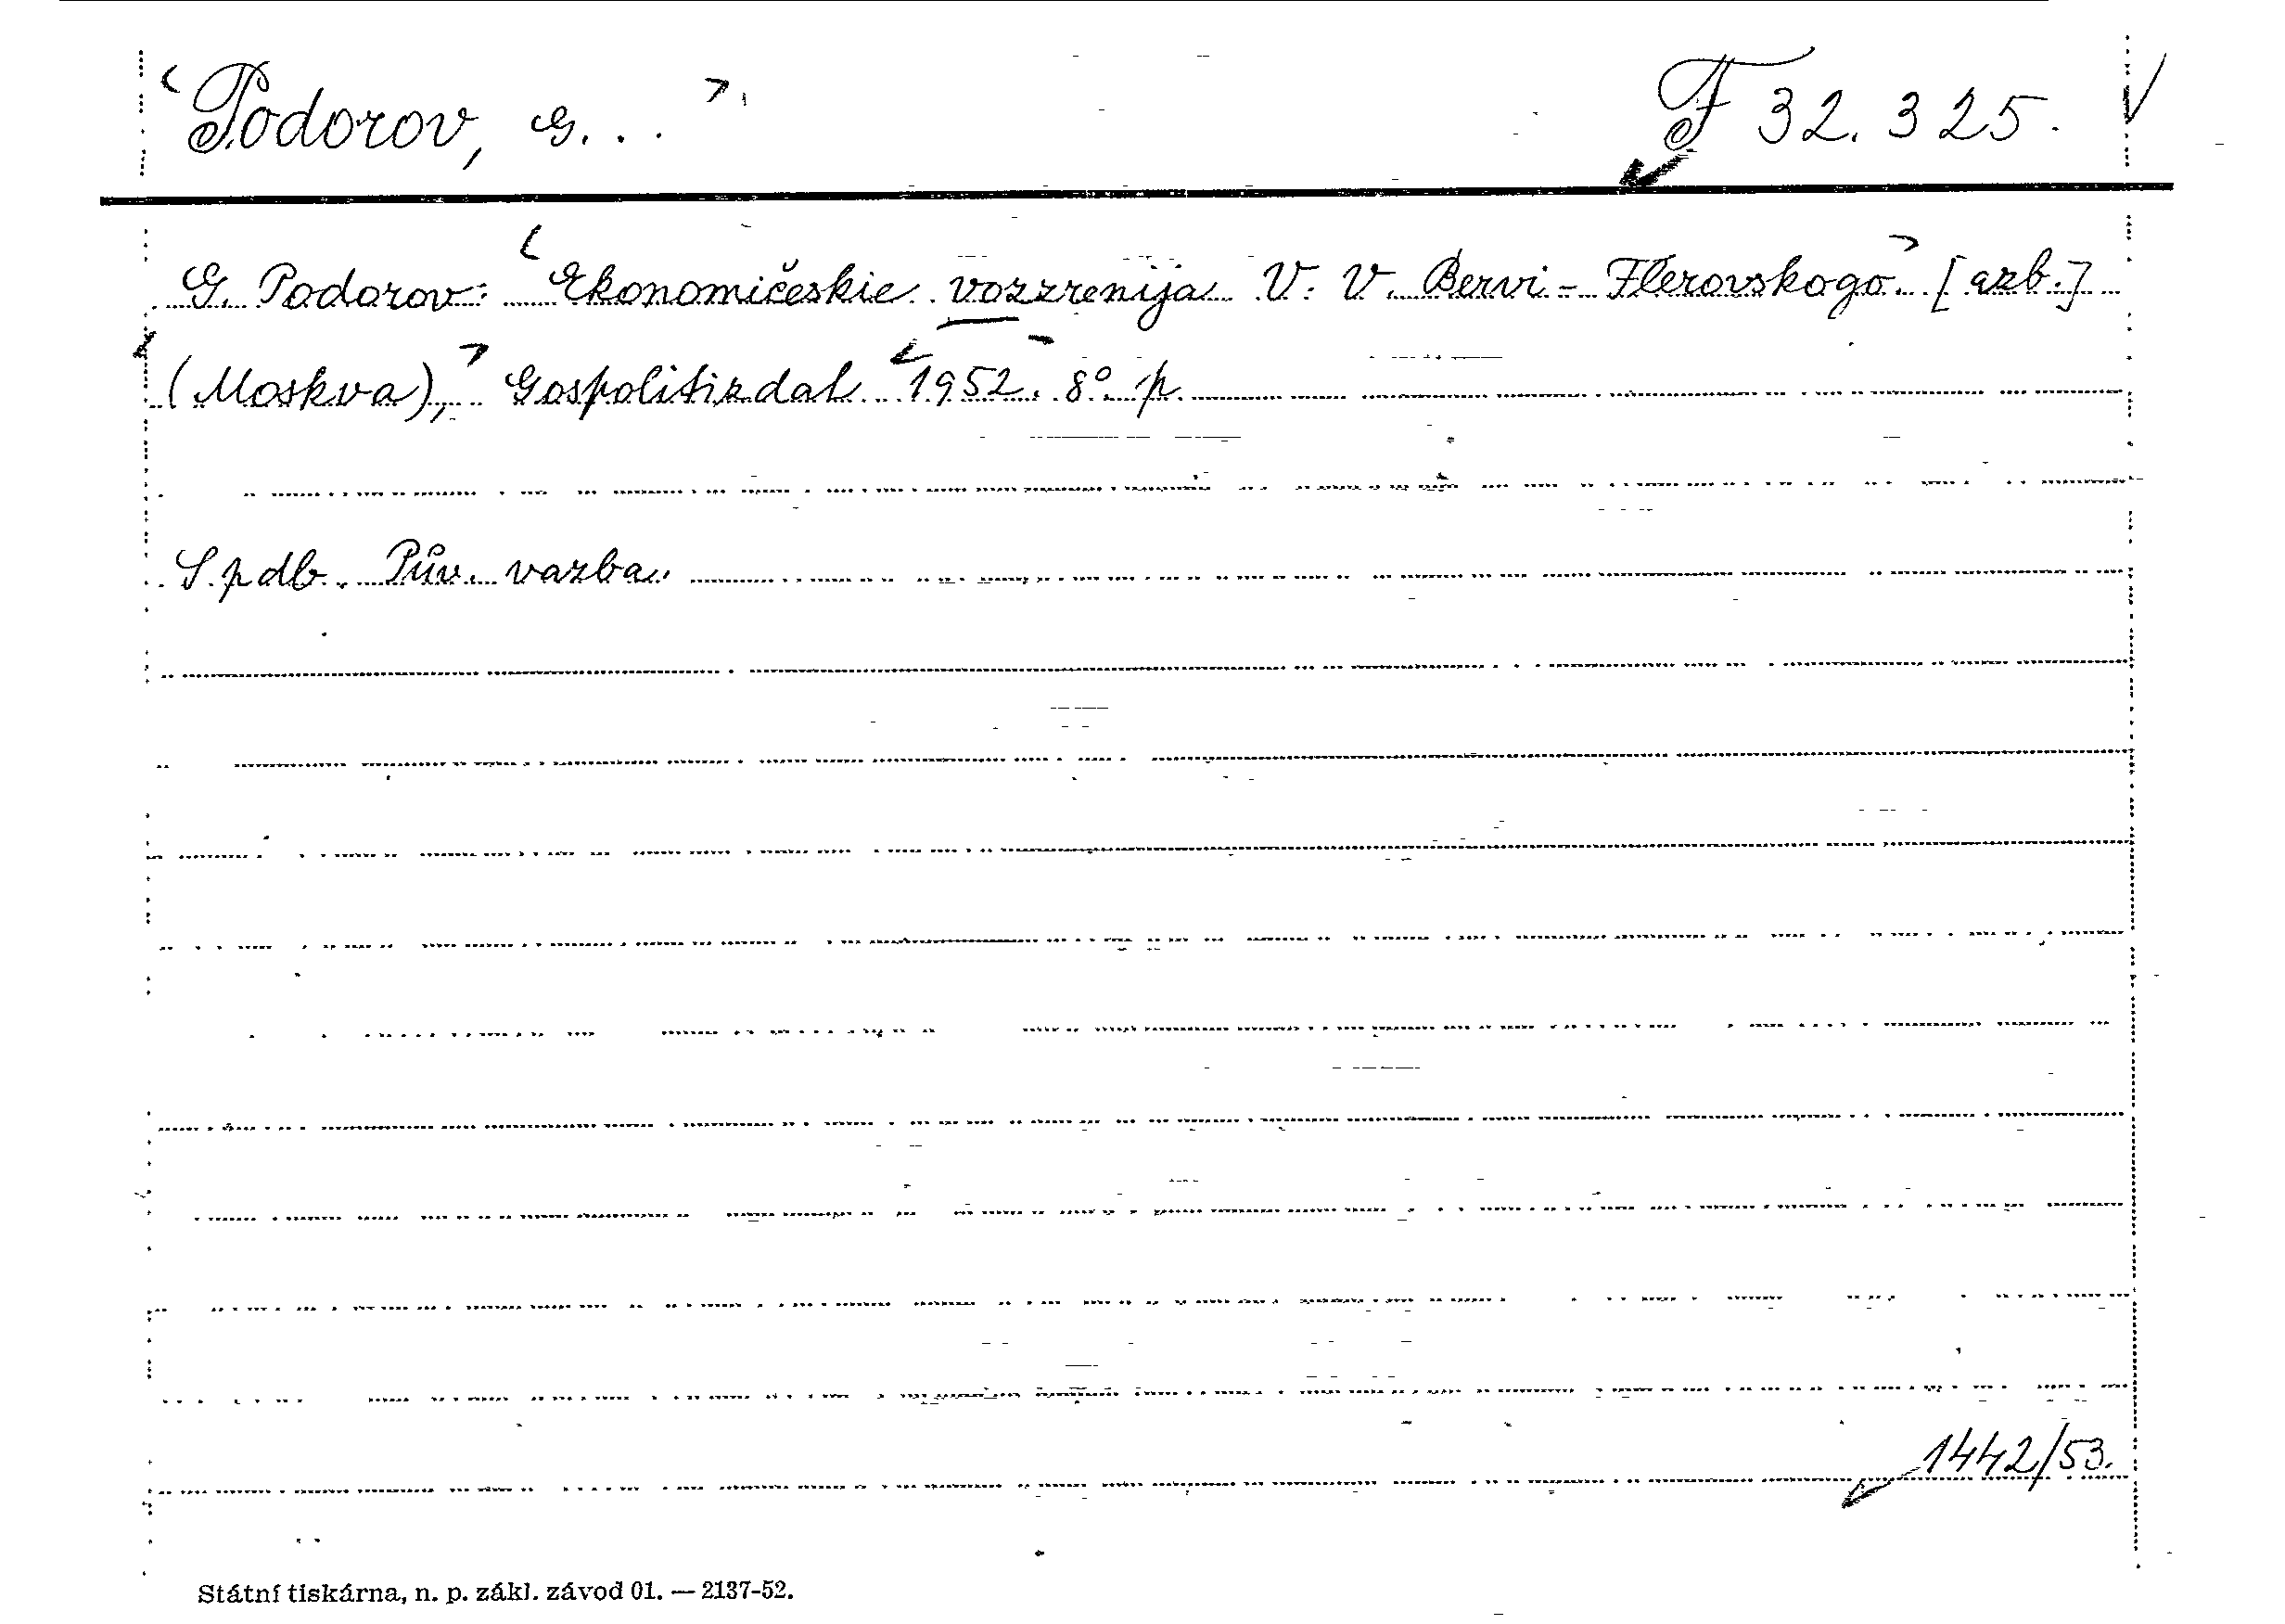 Podorov, G...
F 32.325.
G. Podorov: Ekonomičeskie vozzrenija V. V. Bervi-Flerovskogo [azb.]
(Moskva), Gospolitizdat 1952. 8° p.
S. pdb. Pův. vazba.
1442/53.
Státní tiskárna, n. p. zákl. závod 01. — 2137-52.